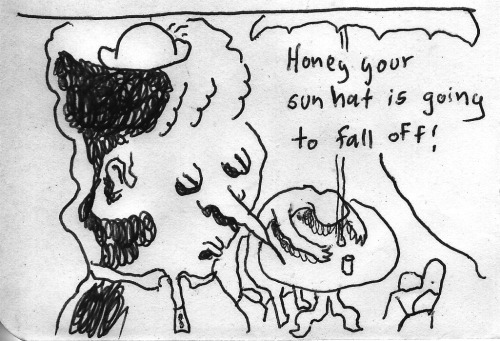 Honey your
sun hat is going
to fall off!